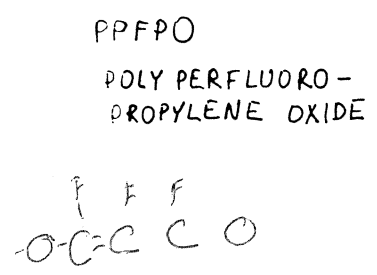 PPFPO
POLY PERFLUORO-
PROPYLENE OXIDE
F F F
-O-C=C C O